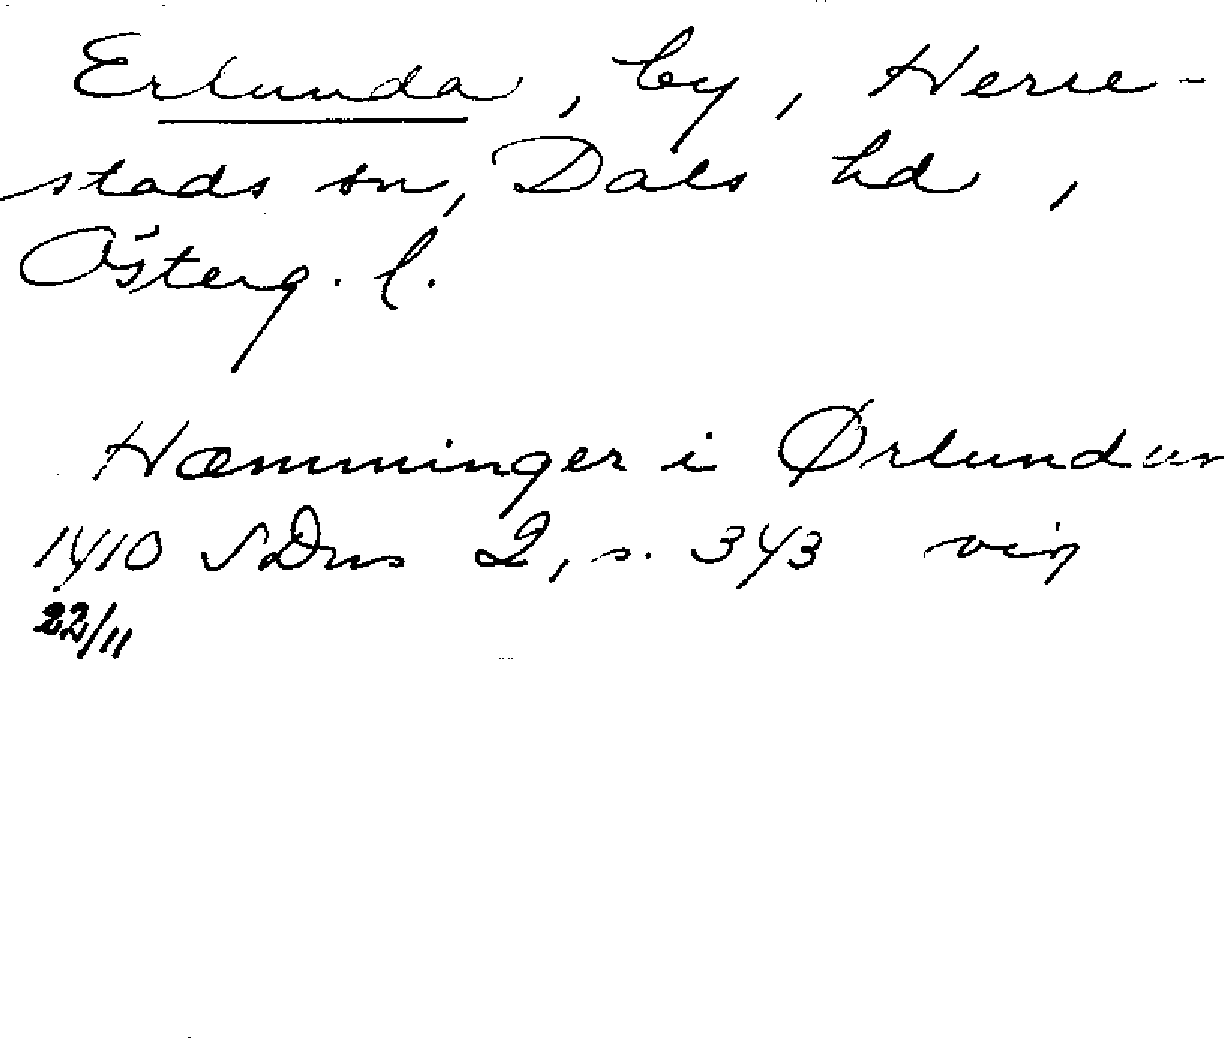 Erlunda, by, Herre-
stads sn, Dals hd,
Österg. l.
Hæmminger i Ørlundum
1410 SDns 2, s. 343 vig
22/11